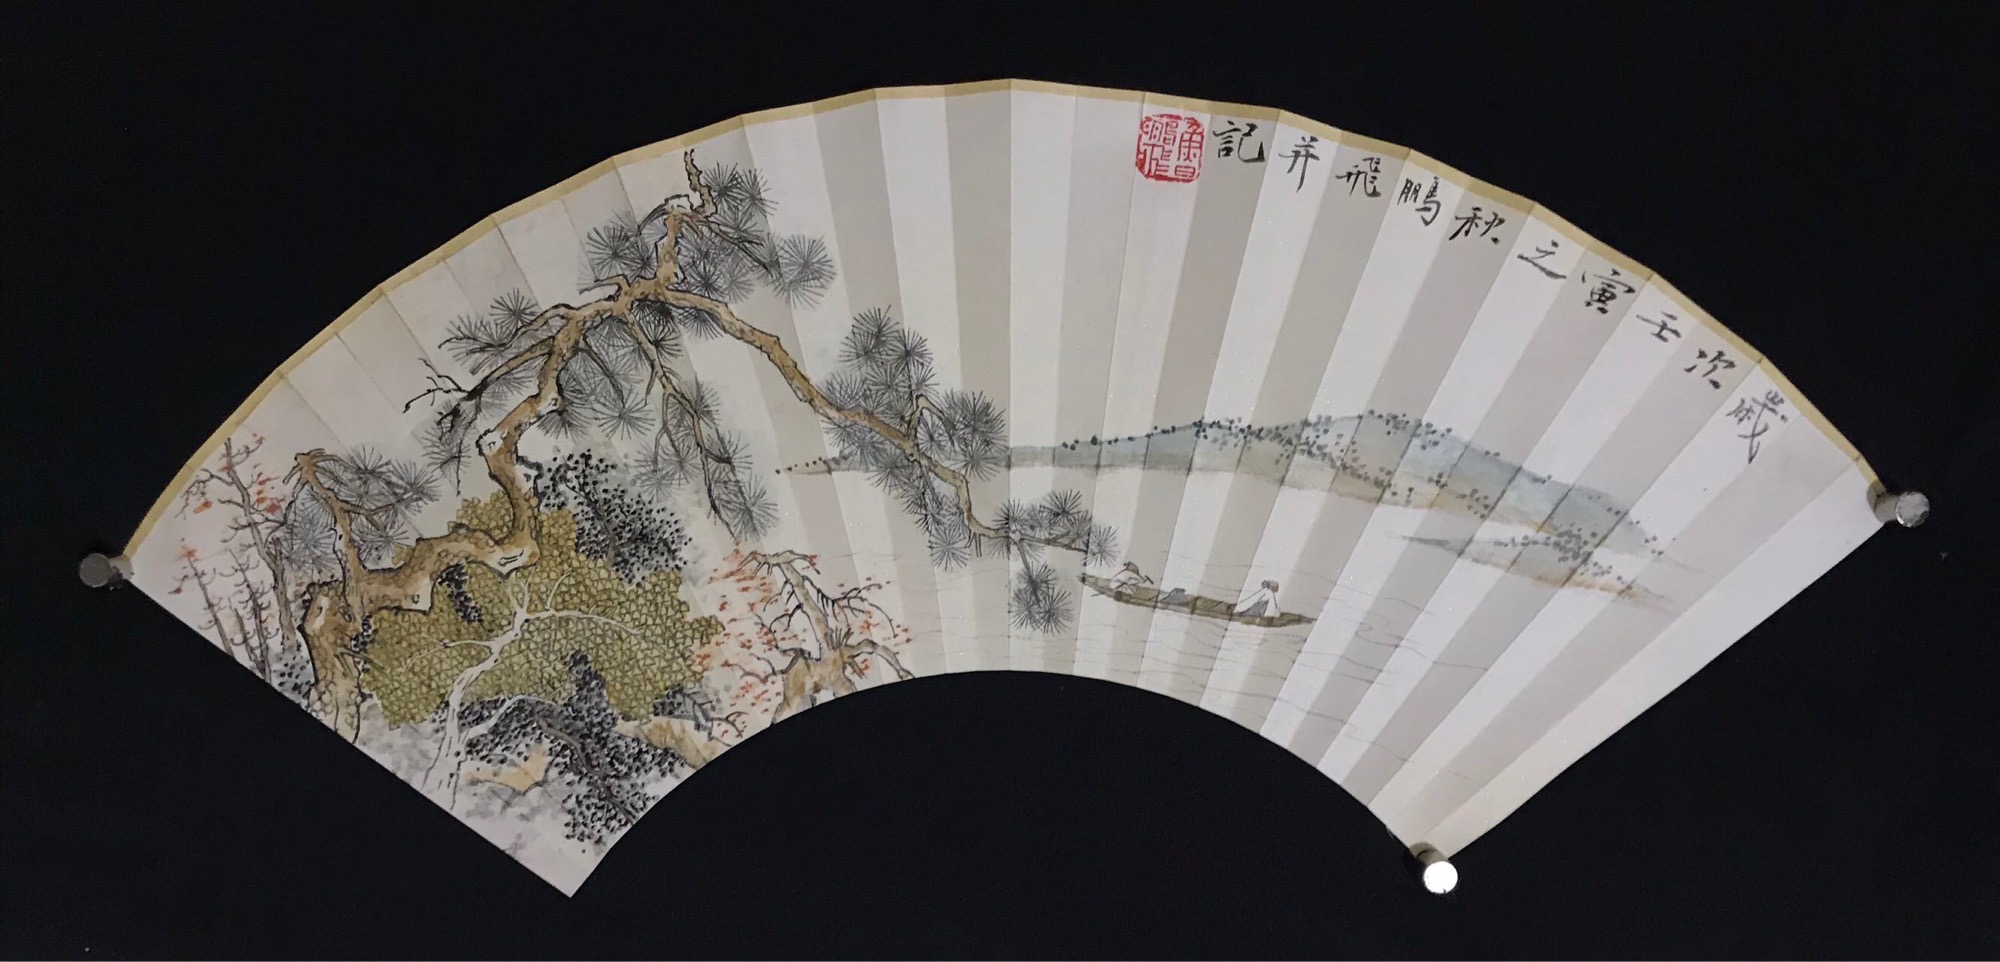 歲次壬寅之秋鵬飛并記